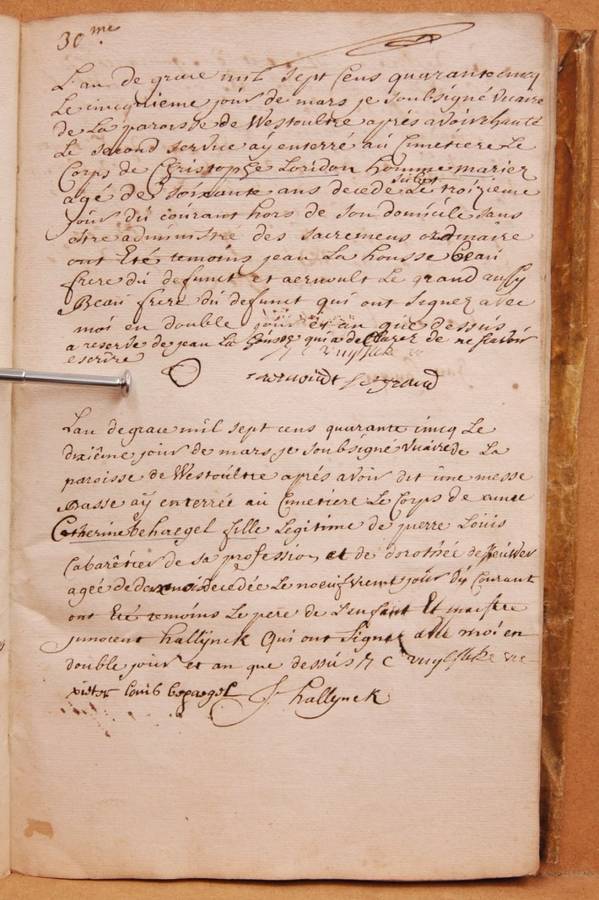 30me
L'an de grace mil sept cens quarante cincq
Le cincquieme jour de mars je soubsigné vicaire
de La paroisse de Westoultre apres avoir chanté
Le second service aÿ enterré au Cimetiere Le
Corps de Christophe Loridon homme mariez
agé de soixante ans decedé subit Le troizieme
jour du courant hors de son domicile sans
estre administré des sacremens ordinaire
ont Eté temoins jean La housse beau
frere du defunct et aernoult Le grand aussy
Beau frere du defunct qui ont signez avec
moi en double jour et an que dessus
a reserve de jean La housse qui a declarez de ne scavoir
escrire
aernoudt Le grand
L'an de grace mil sept cens quarante cincq Le
dixiême jour de mars je soubsigné vicaire de La
paroisse de Westoultre aprés avoir dit une messe
Basse aÿ enterrée au Cimetiere Le Corps de anne
Catherine Behaegel fille Legitime de pierre Louis
Cabarêtier de sa profession, et de dorothée
ageé de decedée Le noeufvieme jour du Courant
ont Eté temoins Le pere de L'enfant Et maistre
innocent hallÿnck Qui ont Signez avec moi en
double jour et an que dessus
Louis behaegel J. hallÿnck